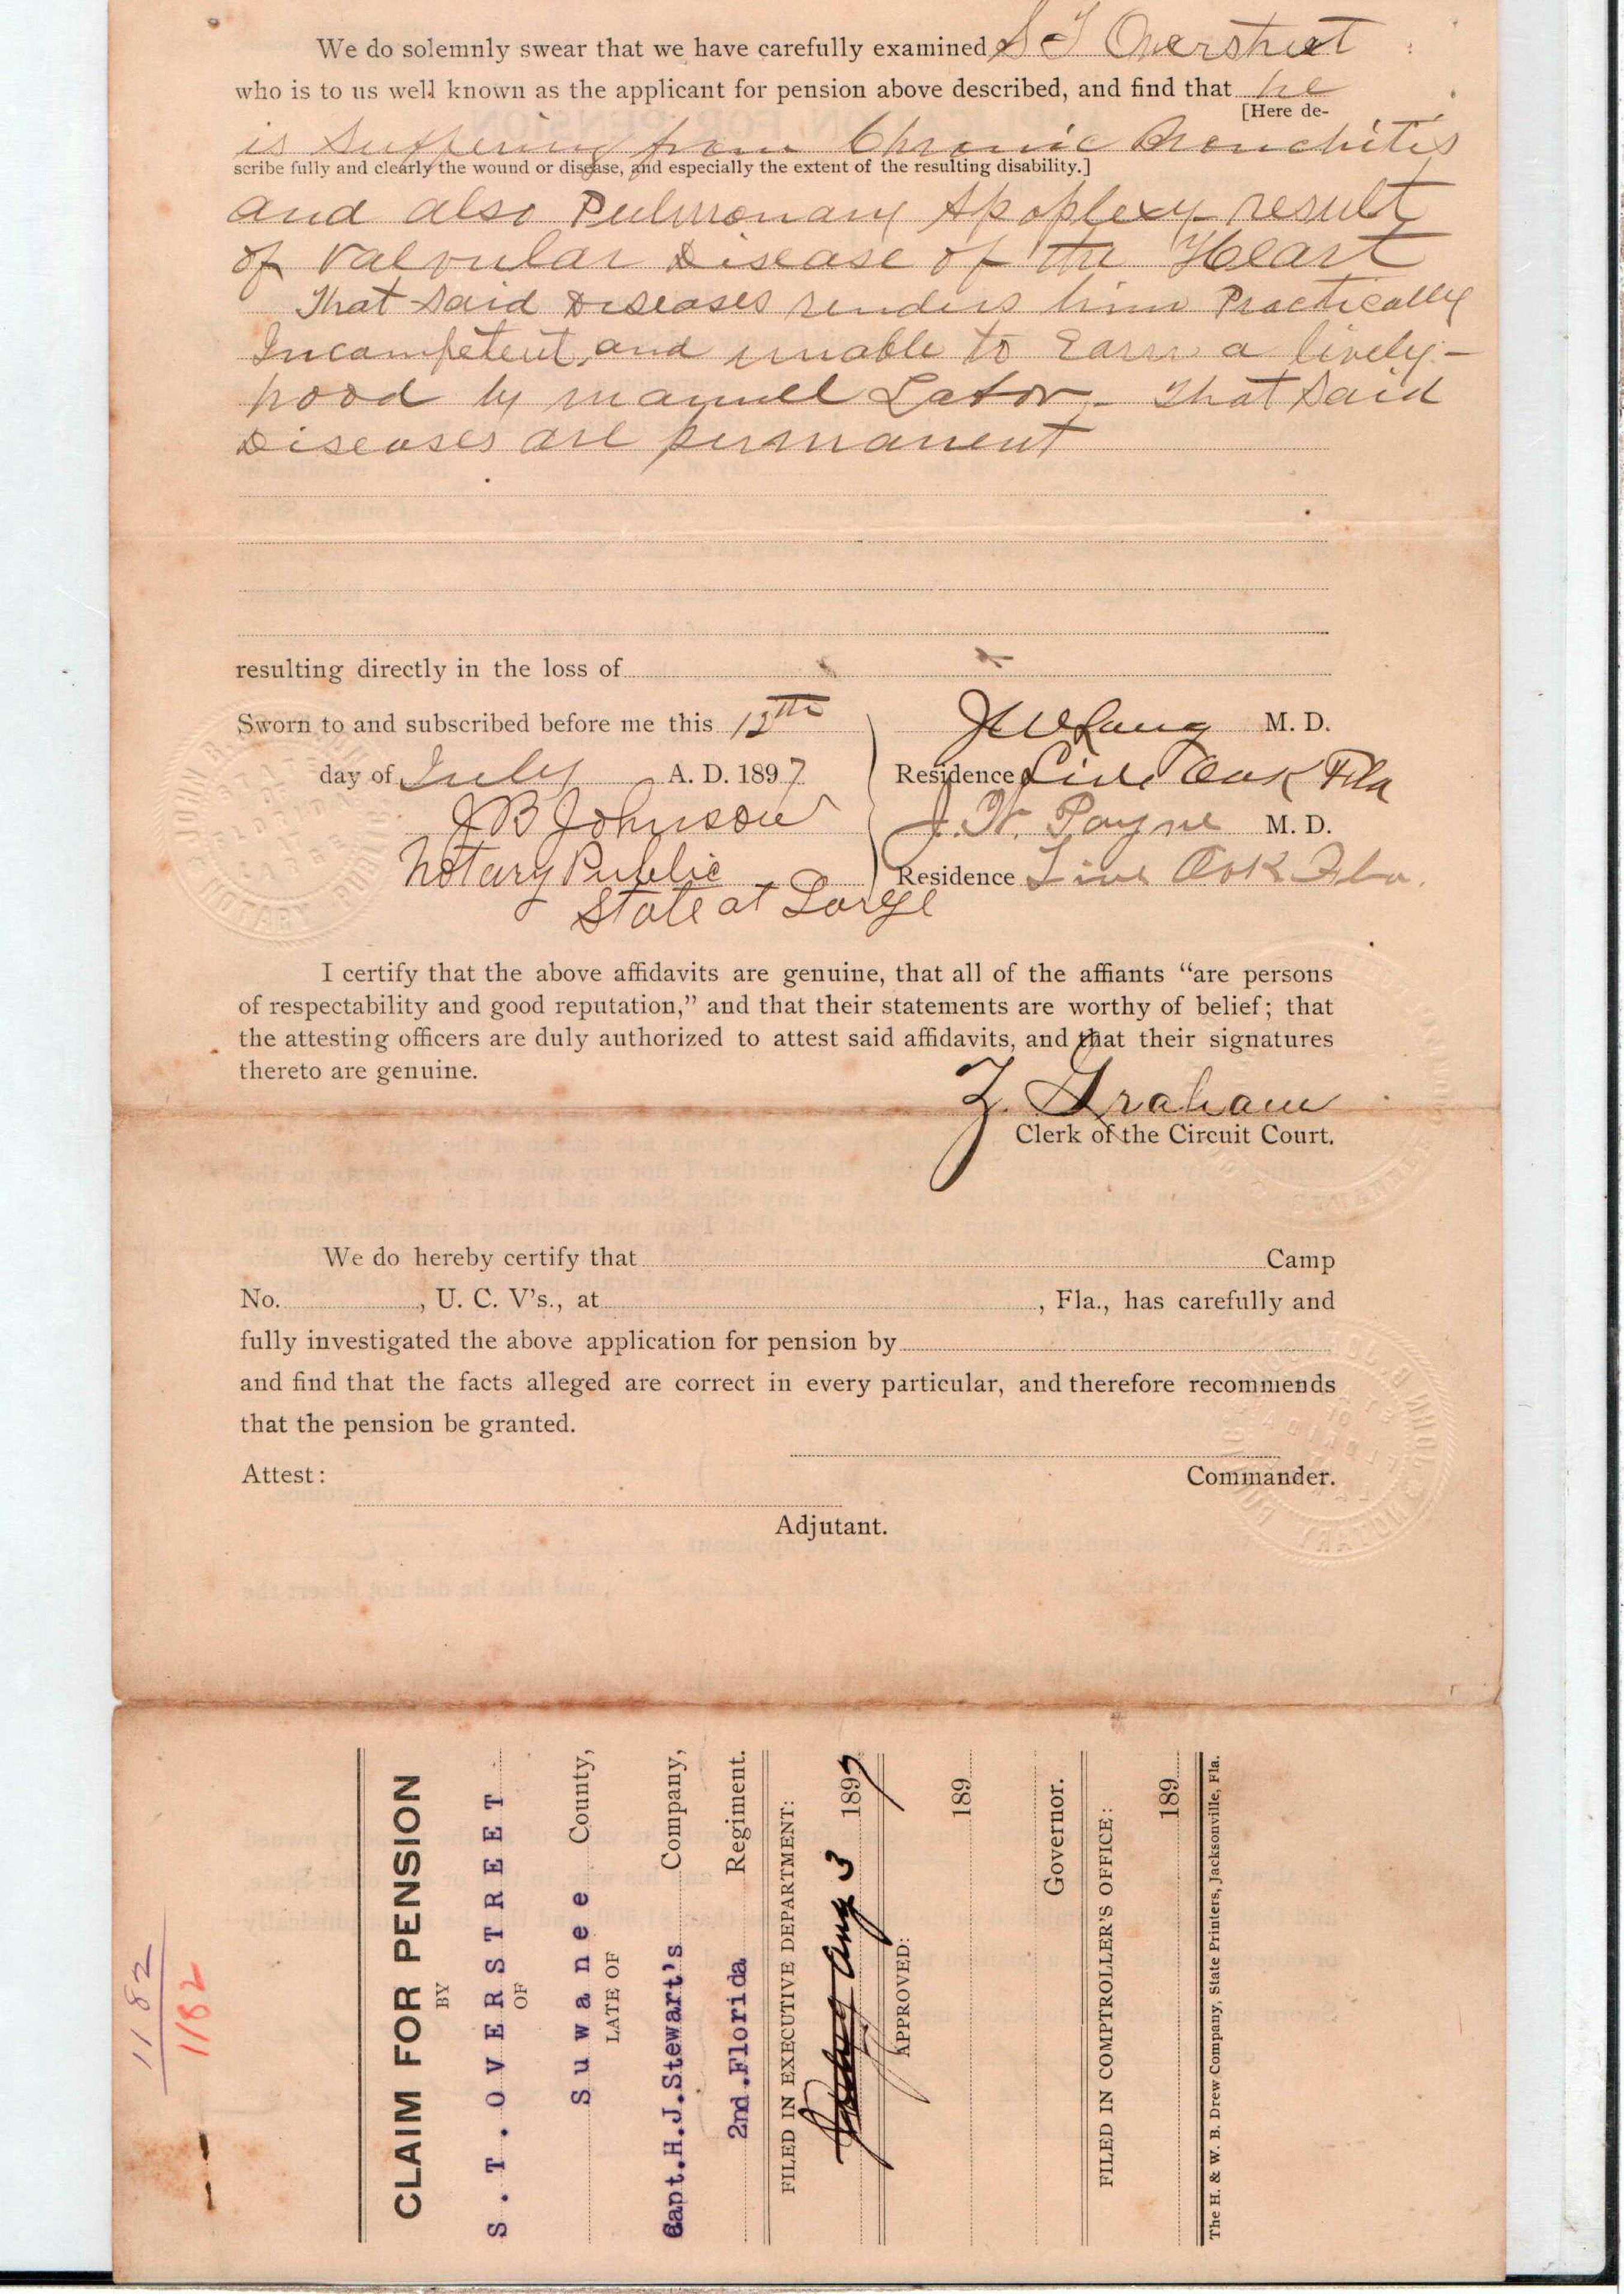 We do solemnly swear that we have carefully examined S T Overstreet
who is to us well known as the applicant for pension above described, and find that he
[Here de-
is suffering from Chronic Bronchitis
scribe fully and clearly the wound or disease, and especially the extent of the resulting disability.]
and also Pulmonary Apoplexy result
of Valvular Disease of the Heart
That said Diseases renders him Practically
Incompetent and unable to Earn a lively-
hood by manuel Labor - That said
Diseases are permanent
resulting directly in the loss of
Sworn to and subscribed before me this 12th
day of July A. D. 1897
J B Johnson
Notary Public
State at Large
M. D.
Residence Live Oak Fla
J. H. Payne M. D.
Residence Live Oak Fla.
I certify that the above affidavits are genuine, that all of the affiants “are persons
of respectability and good reputation,” and that their statements are worthy of belief; that
the attesting officers are duly authorized to attest said affidavits, and that their signatures
thereto are genuine.
Z. Graham
Clerk of the Circuit Court.
We do hereby certify that Camp
No. , U. C. V's., at , Fla., has carefully and
fully investigated the above application for pension by
and find that the facts alleged are correct in every particular, and therefore recommends
that the pension be granted.
Commander.
Attest:
Adjutant.
1182
1182
CLAIM FOR PENSION
BY
S.T.OVERSTREET
OF
Suwanee County,
LATE OF
Capt.H.J.Stewart's Company,
2nd.Florida Regiment.
FILED IN EXECUTIVE DEPARTMENT:
Aug 3 1897
APPROVED:
189
Governor.
FILED IN COMPTROLLER'S OFFICE:
189
The H. & W. B. Drew Company, State Printers, Jacksonville, Fla.